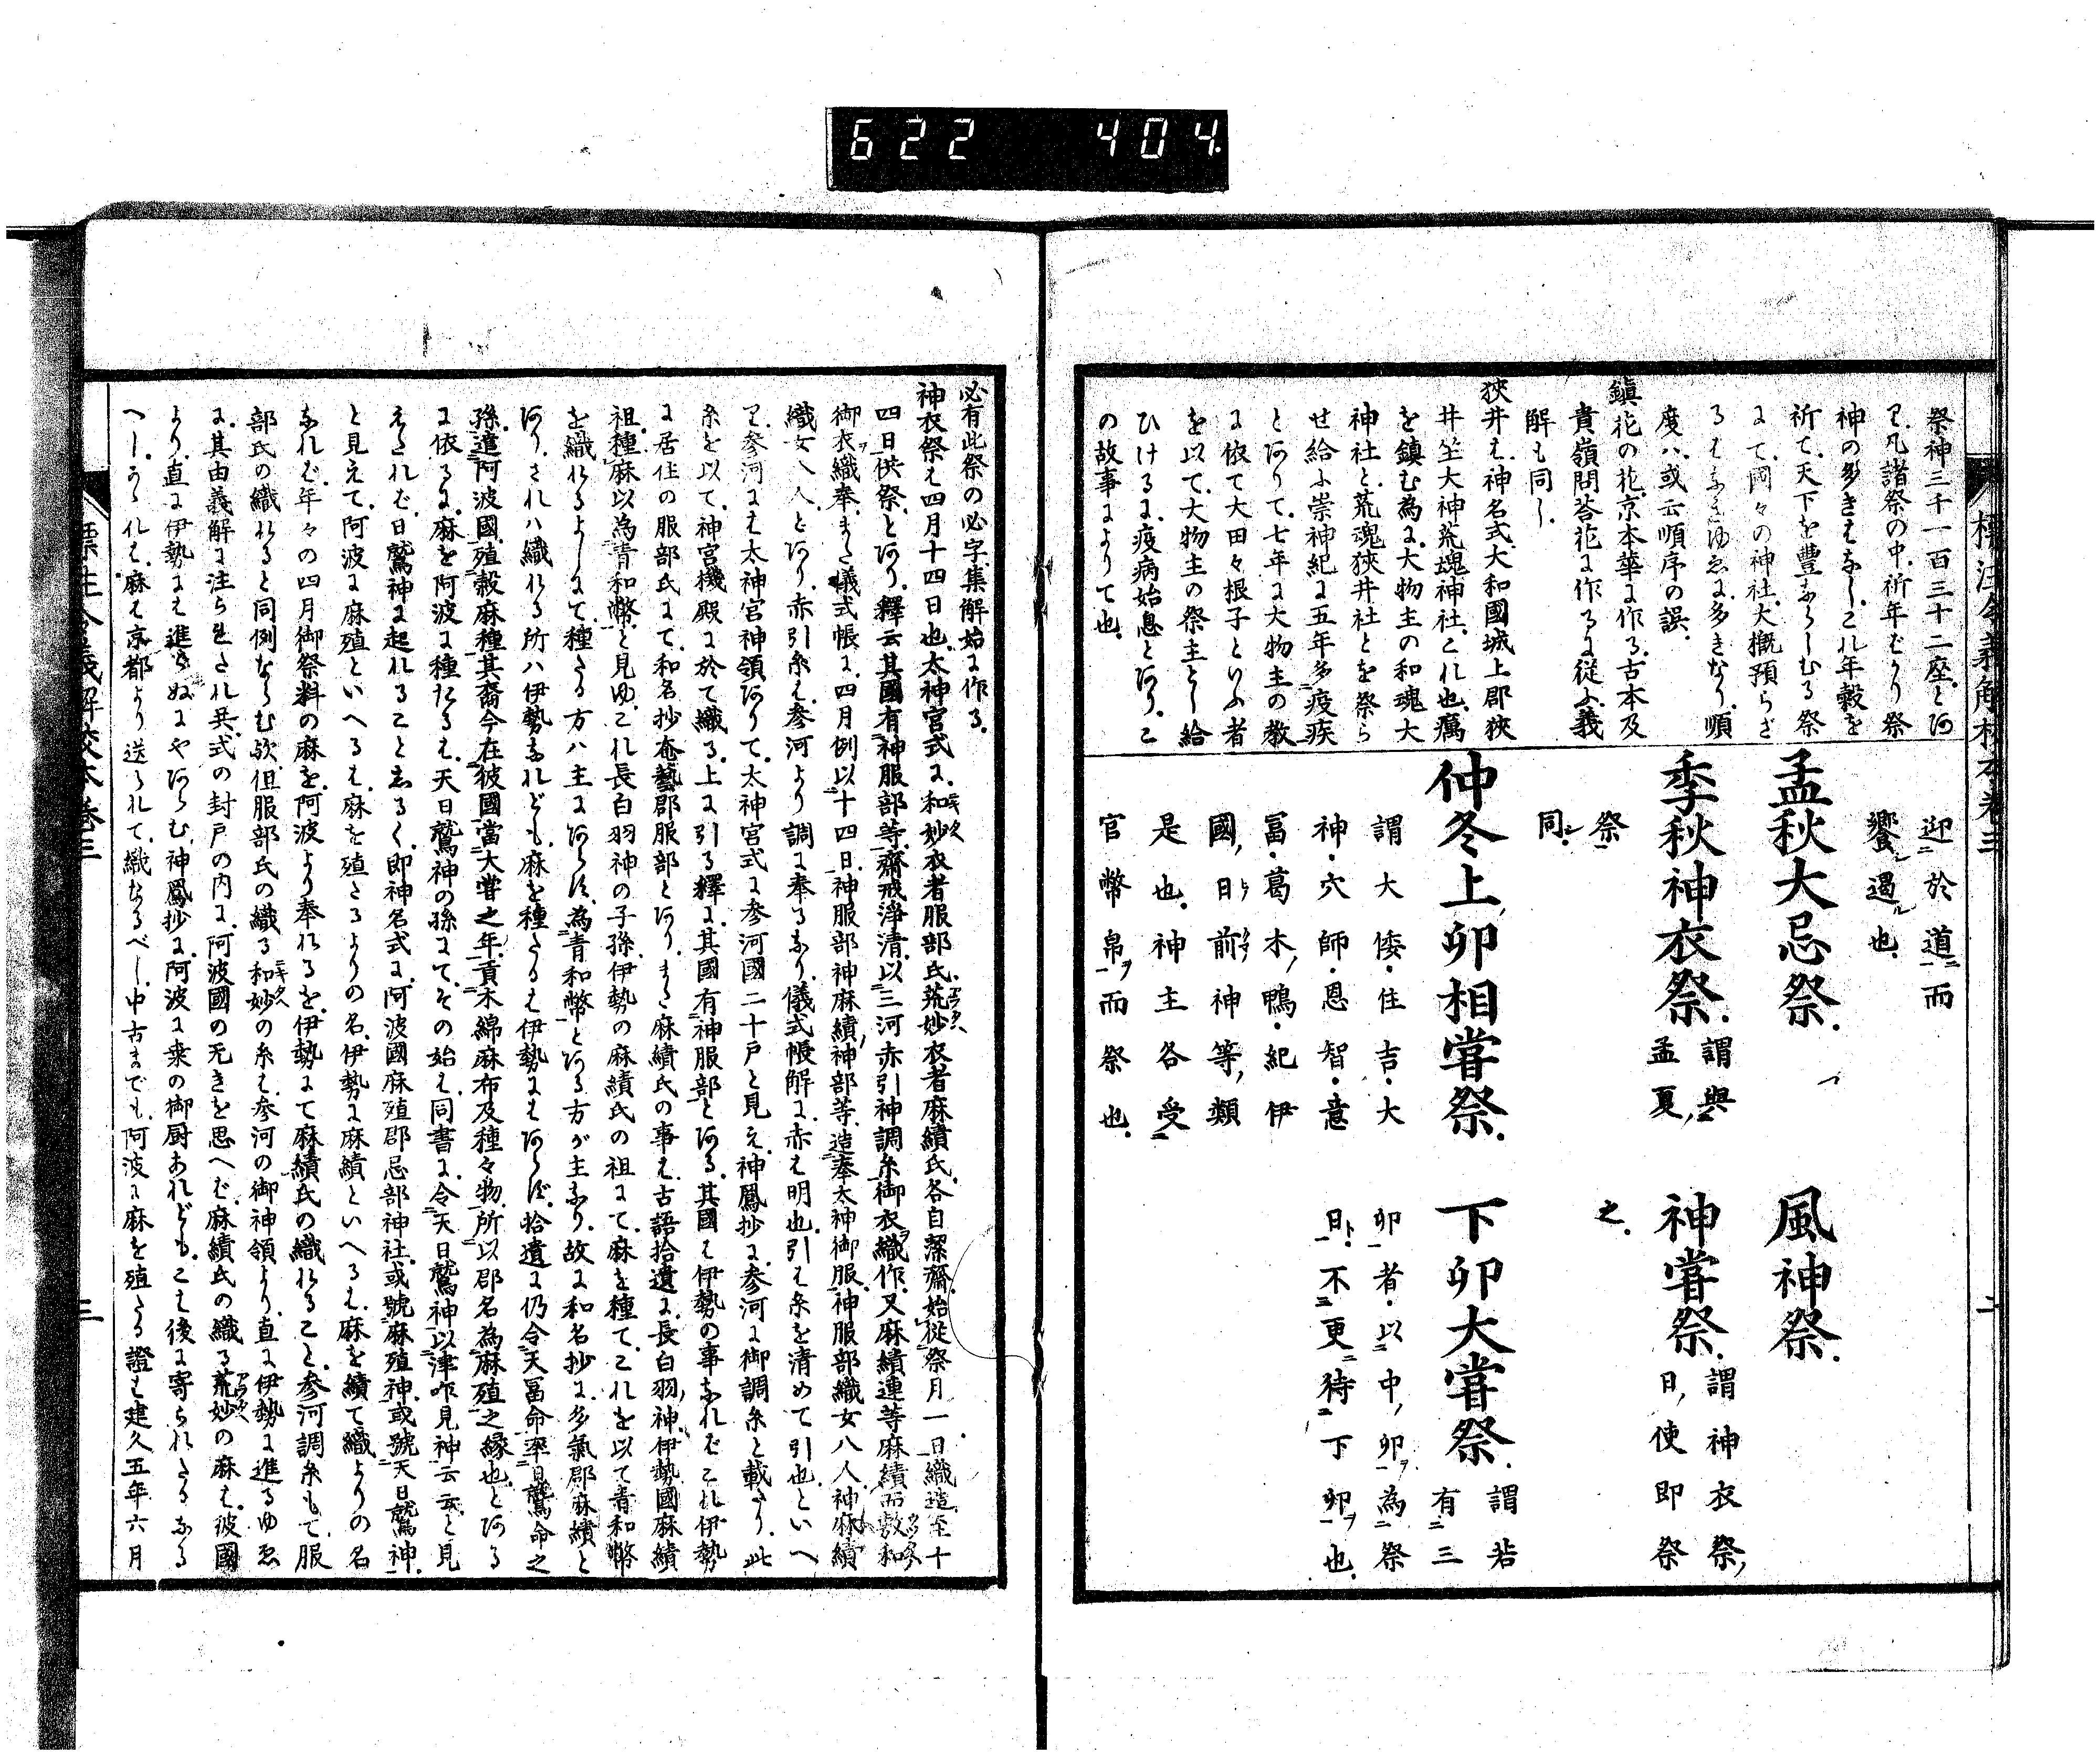 622 404.
標注令義解校本巻三
祭神三千一百三十二座とあ
り凡諸祭の中祈年ばかり祭
神の多きはなしこれ年穀を
祈て天下を豊ならしむる祭
にて国々の神社大概預らざ
るはなきゆゑに多きなり順
度ハ或云順序の誤
鎮花の花京本華に作る古本及
貴嶺問荅花に作るに従ふ義
解も同し
狹井は神名式大和國城上郡狹
井坐大神荒魂神社これ也癘
を鎮む為に大物主の和魂大
神社と荒魂狹井社とを祭ら
せ給ふ崇神紀に五年多疫疾
とありて七年に大物主の教
に依て大田々根子といふ者
を以て大物主の祭主とし給
ひけるに疫病始息とあり こ
の故事によりて也
迎於道而
饗遏也
孟秋大忌祭 風神祭
季秋神衣祭 謂與孟夏祭同 神嘗祭 謂神衣祭日使即祭之
仲冬上卯相嘗祭 下卯大嘗祭 謂若有三
謂大倭住吉大 卯者以中卯為祭
神穴師恩智意 日不更待下卯也
冨葛木鴨紀伊
國日前神等類
是也神主各受
官幣帛而祭也
二
必有此祭の必字集解始に作る
神衣祭は四月十四日也太神宮式に和妙衣者服部氏荒妙衣者麻續氏各自潔齋始從祭月一日織造至十
四日供祭とあり釋云其國有神服部等齋戒淨清以三河赤引神調糸御衣織作又麻續連等麻績而敷和
御衣織奉また儀式帳に四月例以十四日神服部神麻續神部等造奉太神御服神服部織女八人神麻續
織女八人とあり赤引糸は参河より調に奉るなり儀式帳解に赤は明也引は糸を清めて引也といへ
り参河には太神宮神領ありて太神宮式に参河國二十戸と見え神鳳抄に参河に御調糸と載たり此
糸を以て神宮機殿に於て織る上に引る釋に其國有神服部とある其國は伊勢の事なればこれ伊勢
に居住の服部氏にて和名抄奄藝郡服部とありまた麻續氏の事は古語拾遺に長白羽神伊勢國麻續
祖種麻以為青和幣と見ゆこれ長白羽神の子孫伊勢の麻續氏の祖にて麻を種てこれを以て青和幣
を織れるよしにて種たる方ハ主にあらず為青和幣とある方が主なり故に和名抄に多氣郡麻續と
ありされハ織れる所ハ伊勢なれども麻を種たるは伊勢にはあらず拾遺に仍令天冨命率日鷲命之
孫遣阿波國殖穀麻種其裔今在彼國當大嘗之年貢木綿麻布及種々物所以郡名為麻殖之縁也とある
に依るに麻を阿波に種たるは天日鷲神の孫にてその始は同書に令天日鷲神以津咋見神云云と見
えたれば日鷲神に起れることしるく即神名式に阿波國麻殖郡忌部神社或號麻殖神或號天日鷲神
と見えて阿波に麻殖といへるは麻を殖たるよりの名伊勢に麻績といへるは麻を績て織よりの名
なれば年々の四月御祭料の麻を阿波より奉れるを伊勢にて麻績氏の織れること参河調糸もて服
部氏の織れると同例ならむ歟但服部氏の織る和妙の糸は参河の御神領より直に伊勢に進るゆゑ
に其由義解に注らされ共式の封戸の内に阿波國の无きを思へば麻績氏の織る荒妙の麻は彼國
より直に伊勢には進らぬにやあらむ神鳳抄に阿波に桒の御厨あれどもこは後に寄られたるなる
へしかれは麻は京都より送られて織なるべし中古までも阿波に麻を殖たる證は建久五年六月
標注令義解校本巻三
三